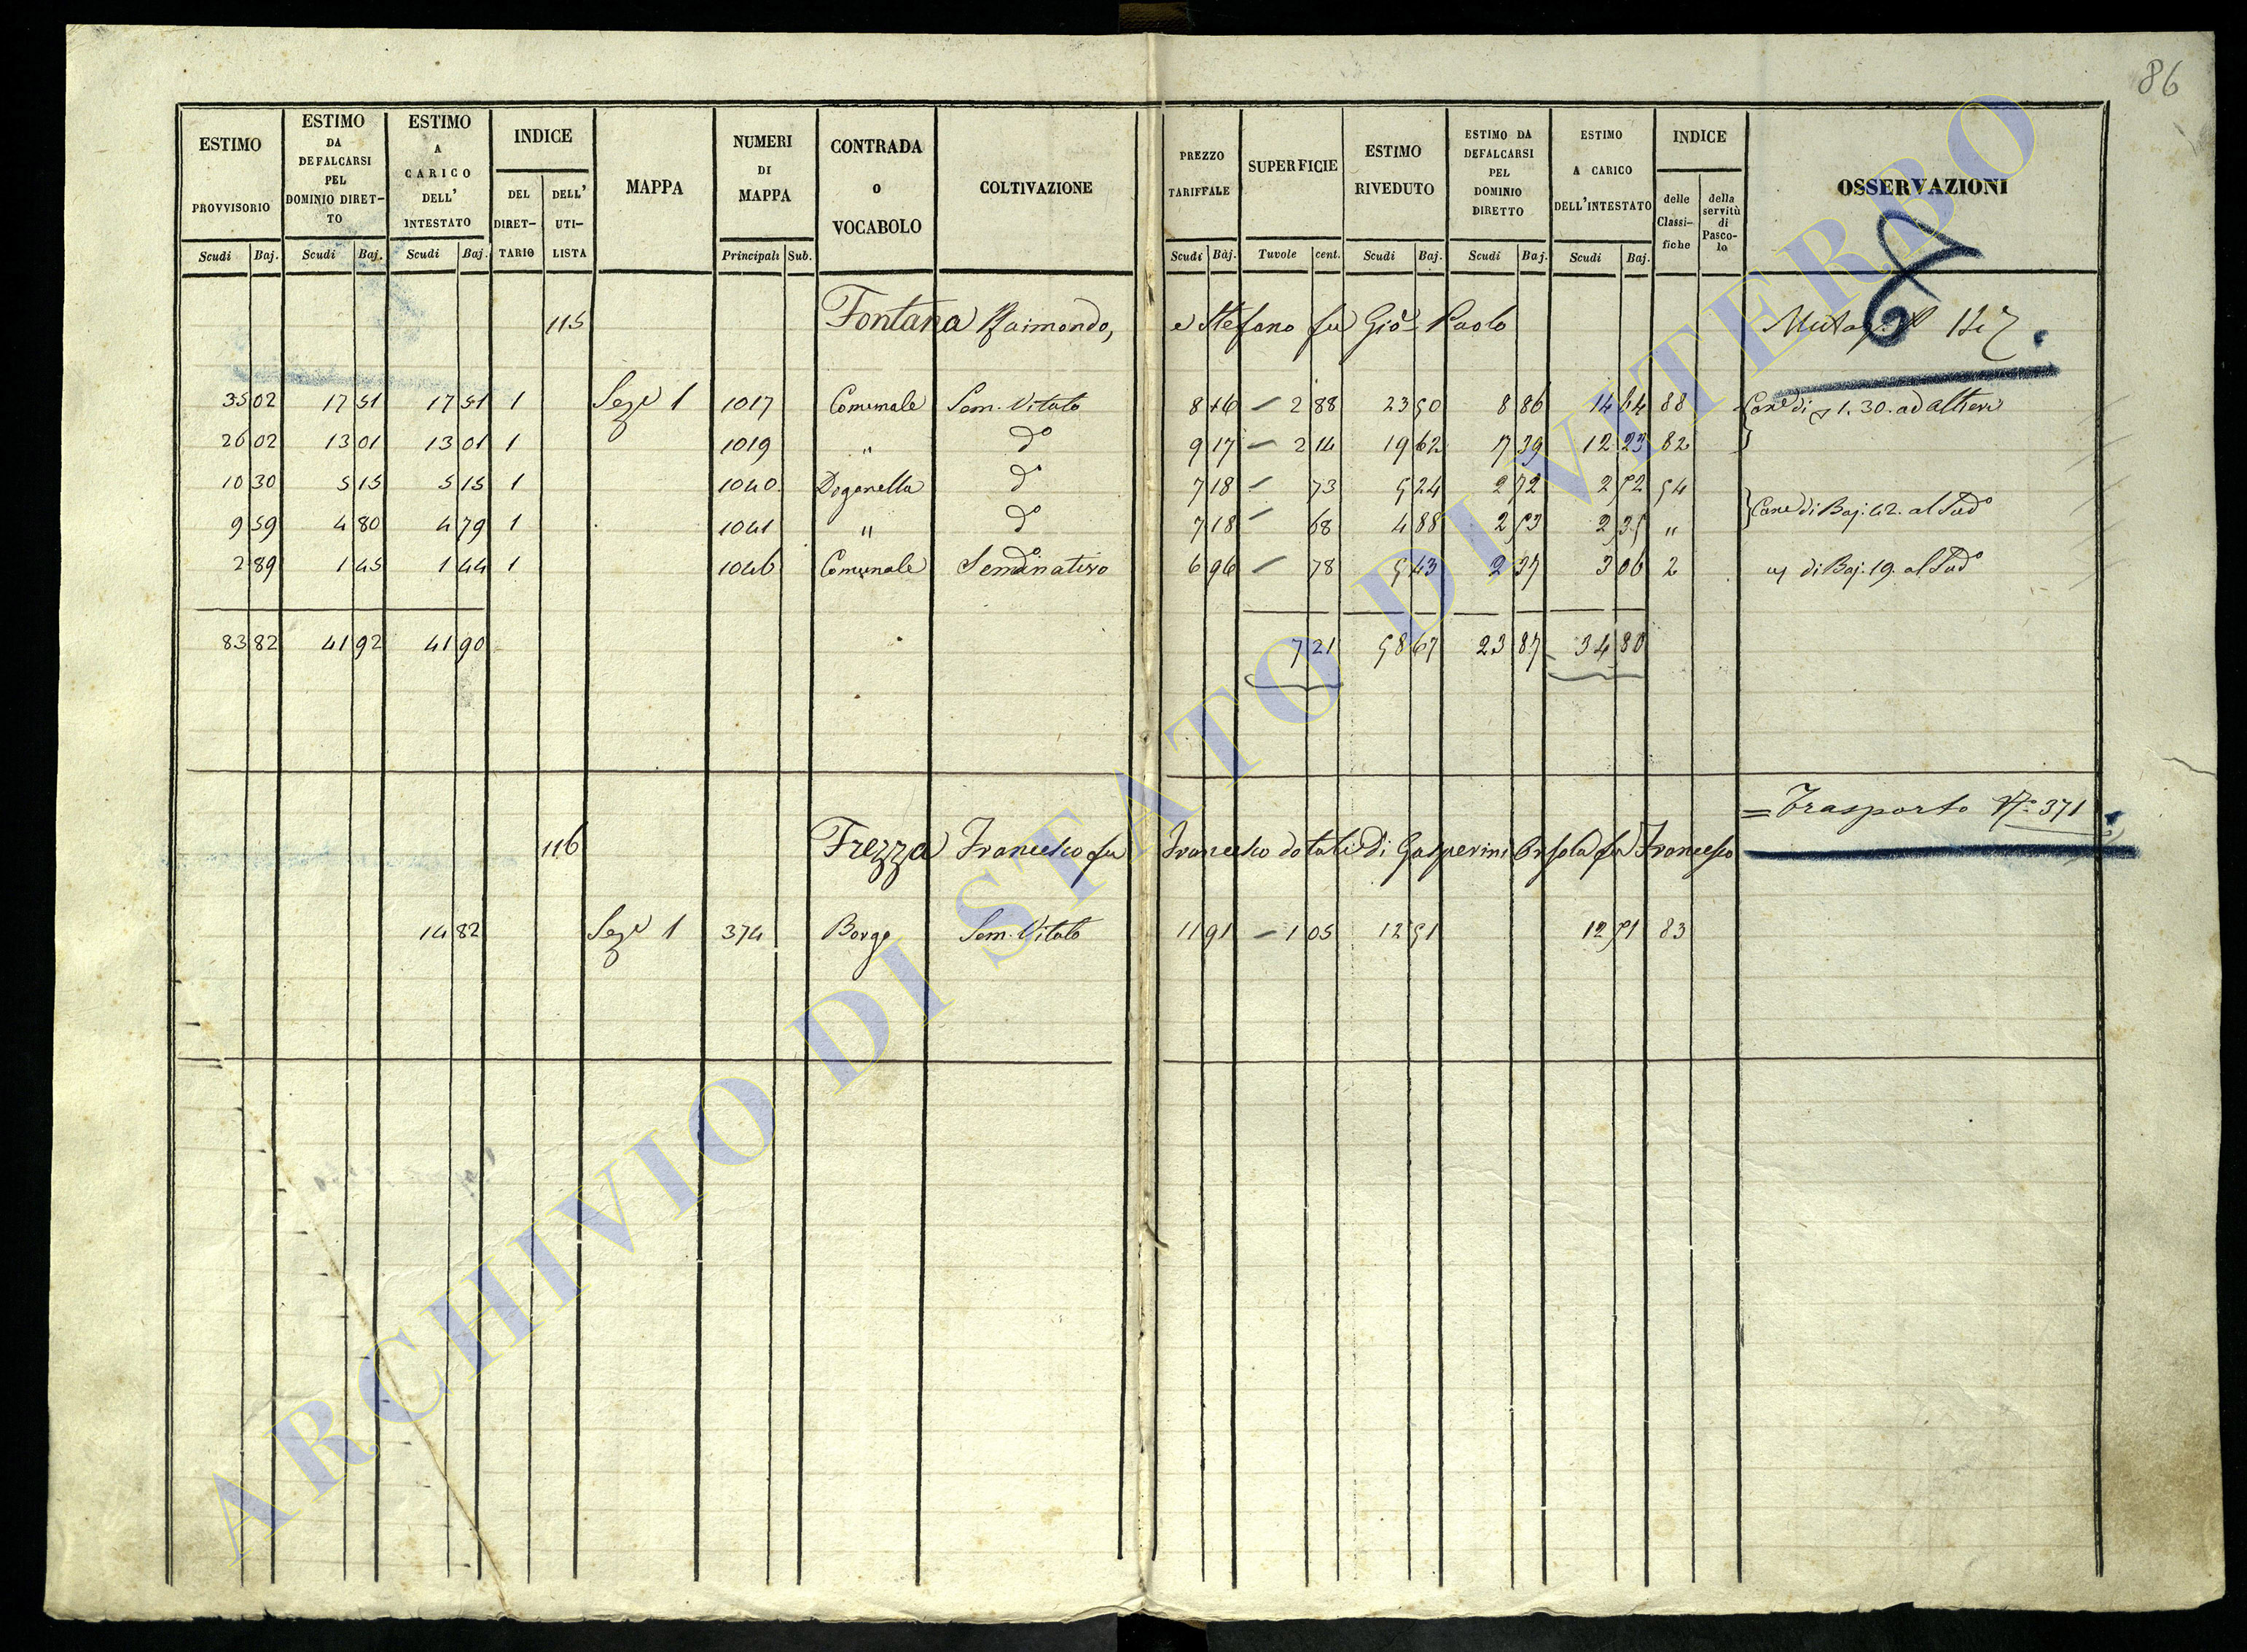 86
ESTIMO PROVVISORIO Scudi Baj. ESTIMO DA DEFALCARSI PEL DOMINIO DIRETTO Scudi Baj. ESTIMO A CARICO DELL' INTESTATO Scudi Baj. INDICE DEL DIRETTARIO DELL' UTILISTA MAPPA NUMERI DI MAPPA Principali Sub. CONTRADA O VOCABOLO COLTIVAZIONE PREZZO TARIFFALE Scudi Baj. SUPERFICIE Tavole cent. ESTIMO RIVEDUTO Scudi Baj. ESTIMO DA DEFALCARSI PEL DOMINIO DIRETTO Scudi Baj. ESTIMO A CARICO DELL'INTESTATO Scudi Baj. INDICE delle Classifiche della servitù di Pascolo OSSERVAZIONI
115 Fontana Raimondo, e Stefano fu Gio: Paolo
35 02 17 51 17 51 1 Seze 1 1017 Comunale Sem. Vitato 8 16 2 88 23 50 8 86 14 64 88 1.30. ad altieri
26 02 13 01 13 01 1 1019 " do 9 17 2 14 19 62 7 39 12 23 82
10 30 5 15 5 15 1 1040 Doganella do 7 18 73 5 24 2 72 2 52 54
9 59 4 80 4 79 1 1041 " do 7 18 68 4 88 2 53 2 35 " di Baj: 42. al Sudo
2 89 1 45 1 44 1 1046 Comunale Seminativo 6 96 78 5 43 2 37 3 06 2 di Baj: 19. al Sudo
83 82 41 92 41 90 7 21 58 67 23 87 34 80
= Trasporto No 371
116 Frezza Francesco fu Francesco dotali di Gasperini Orsola fu Francesco
14 82 Seze 1 374 Borgo Sem. Vitato 11 91 1 05 12 51 12 51 83
ARCHIVIO DI STATO DI VITERBO